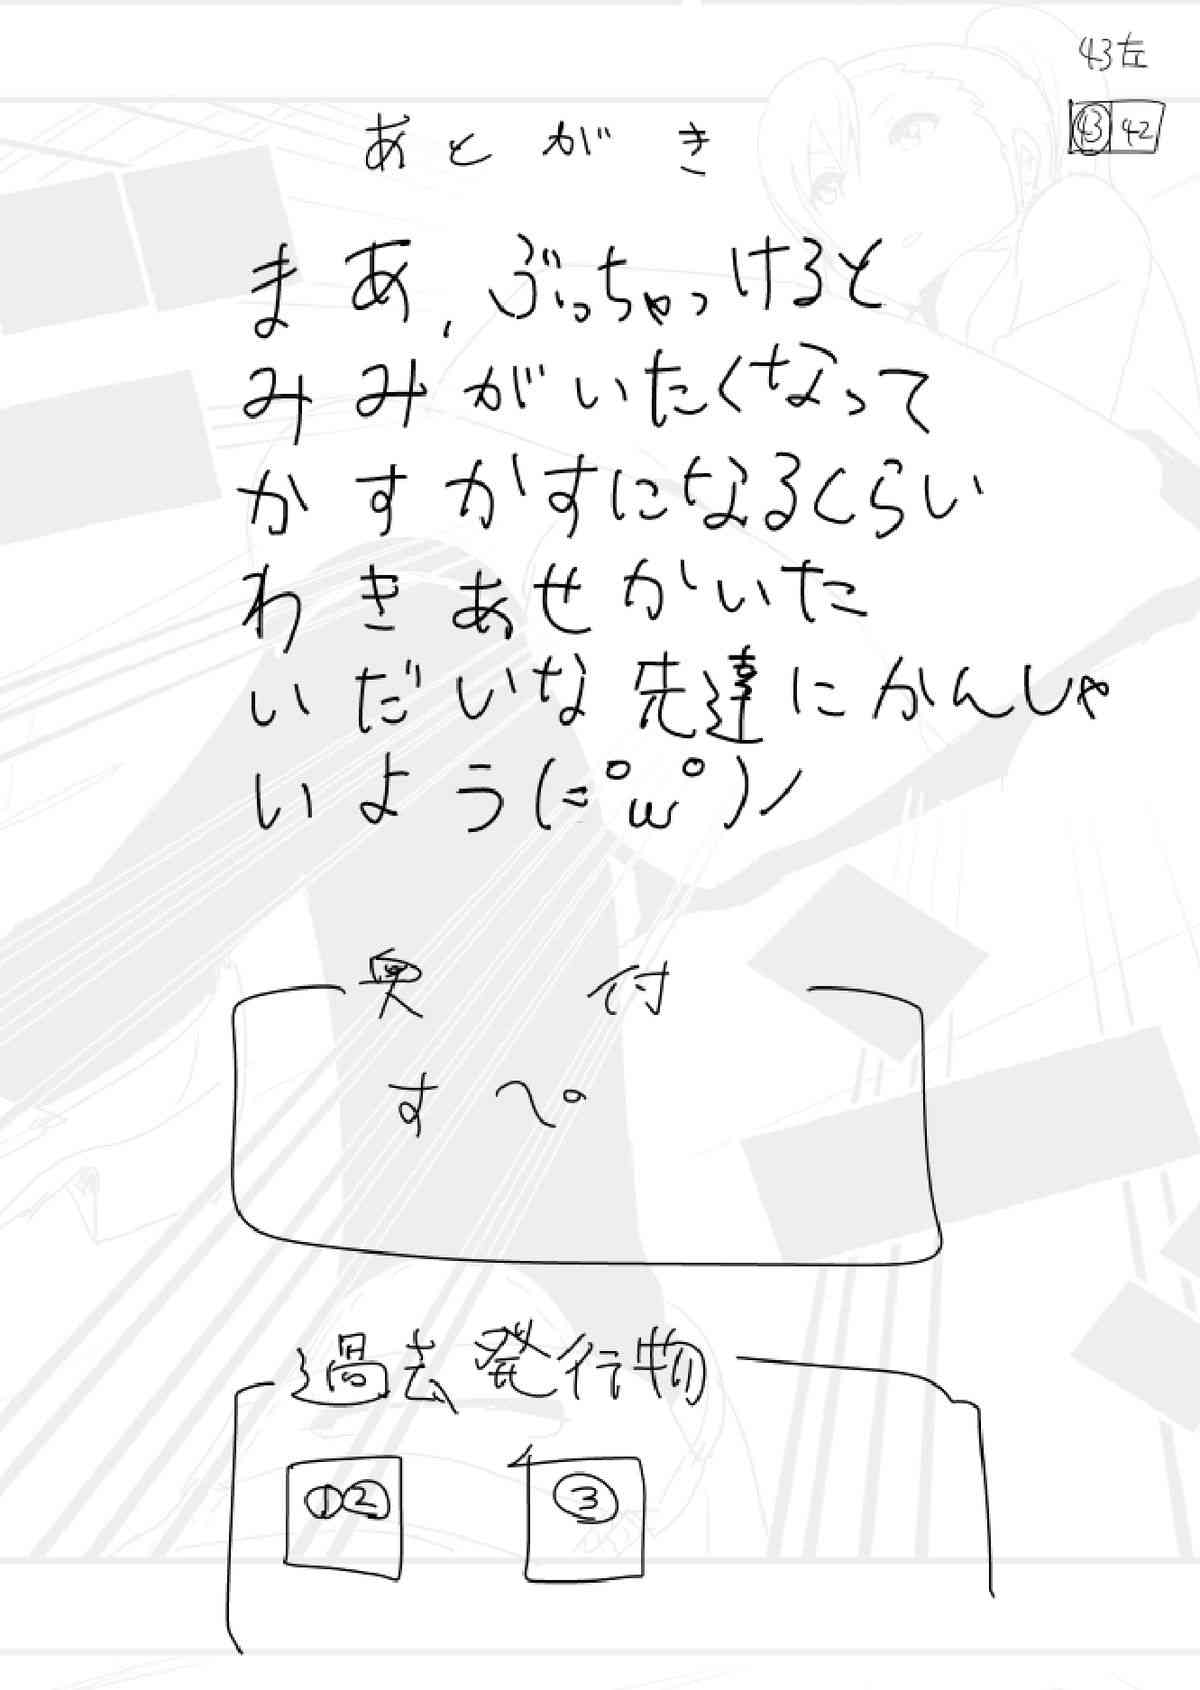 43左
43 42
あとがき
まあ、ぶっちゃけると
みみがいたくなって
かすかすになるくらい
わきあせかいた
いだいな先達にかんしゃ
いよう(=°ω°)ノ
奥付
すぺ
過去発行物
①② ③